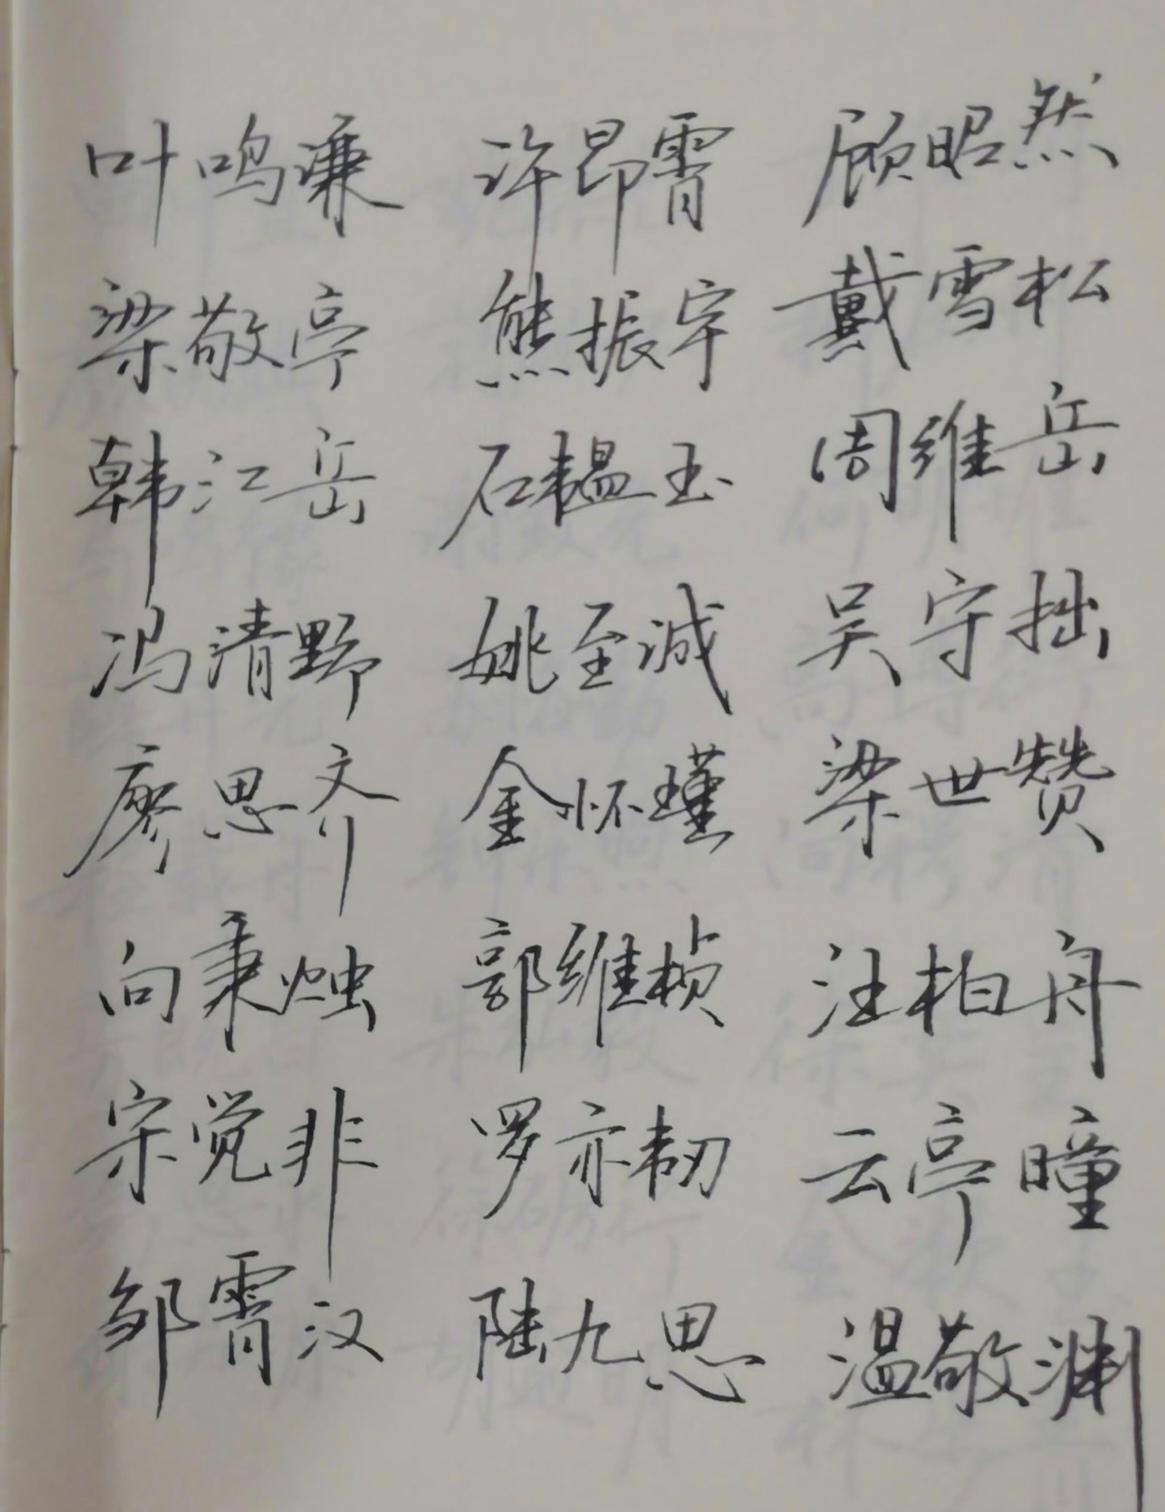 叶鸣谦 许昂霄 顾昭然
梁敬亭 熊振宇 戴雪松
韩江岳 石韫玉 周维岳
冯清野 姚至诚 吴守拙
廖思齐 金怀瑾 梁世赞
向秉烛 郭维桢 汪柏舟
宋觉非 罗亦韧 云亭曈
邹霄汉 陆九思 温敬渊